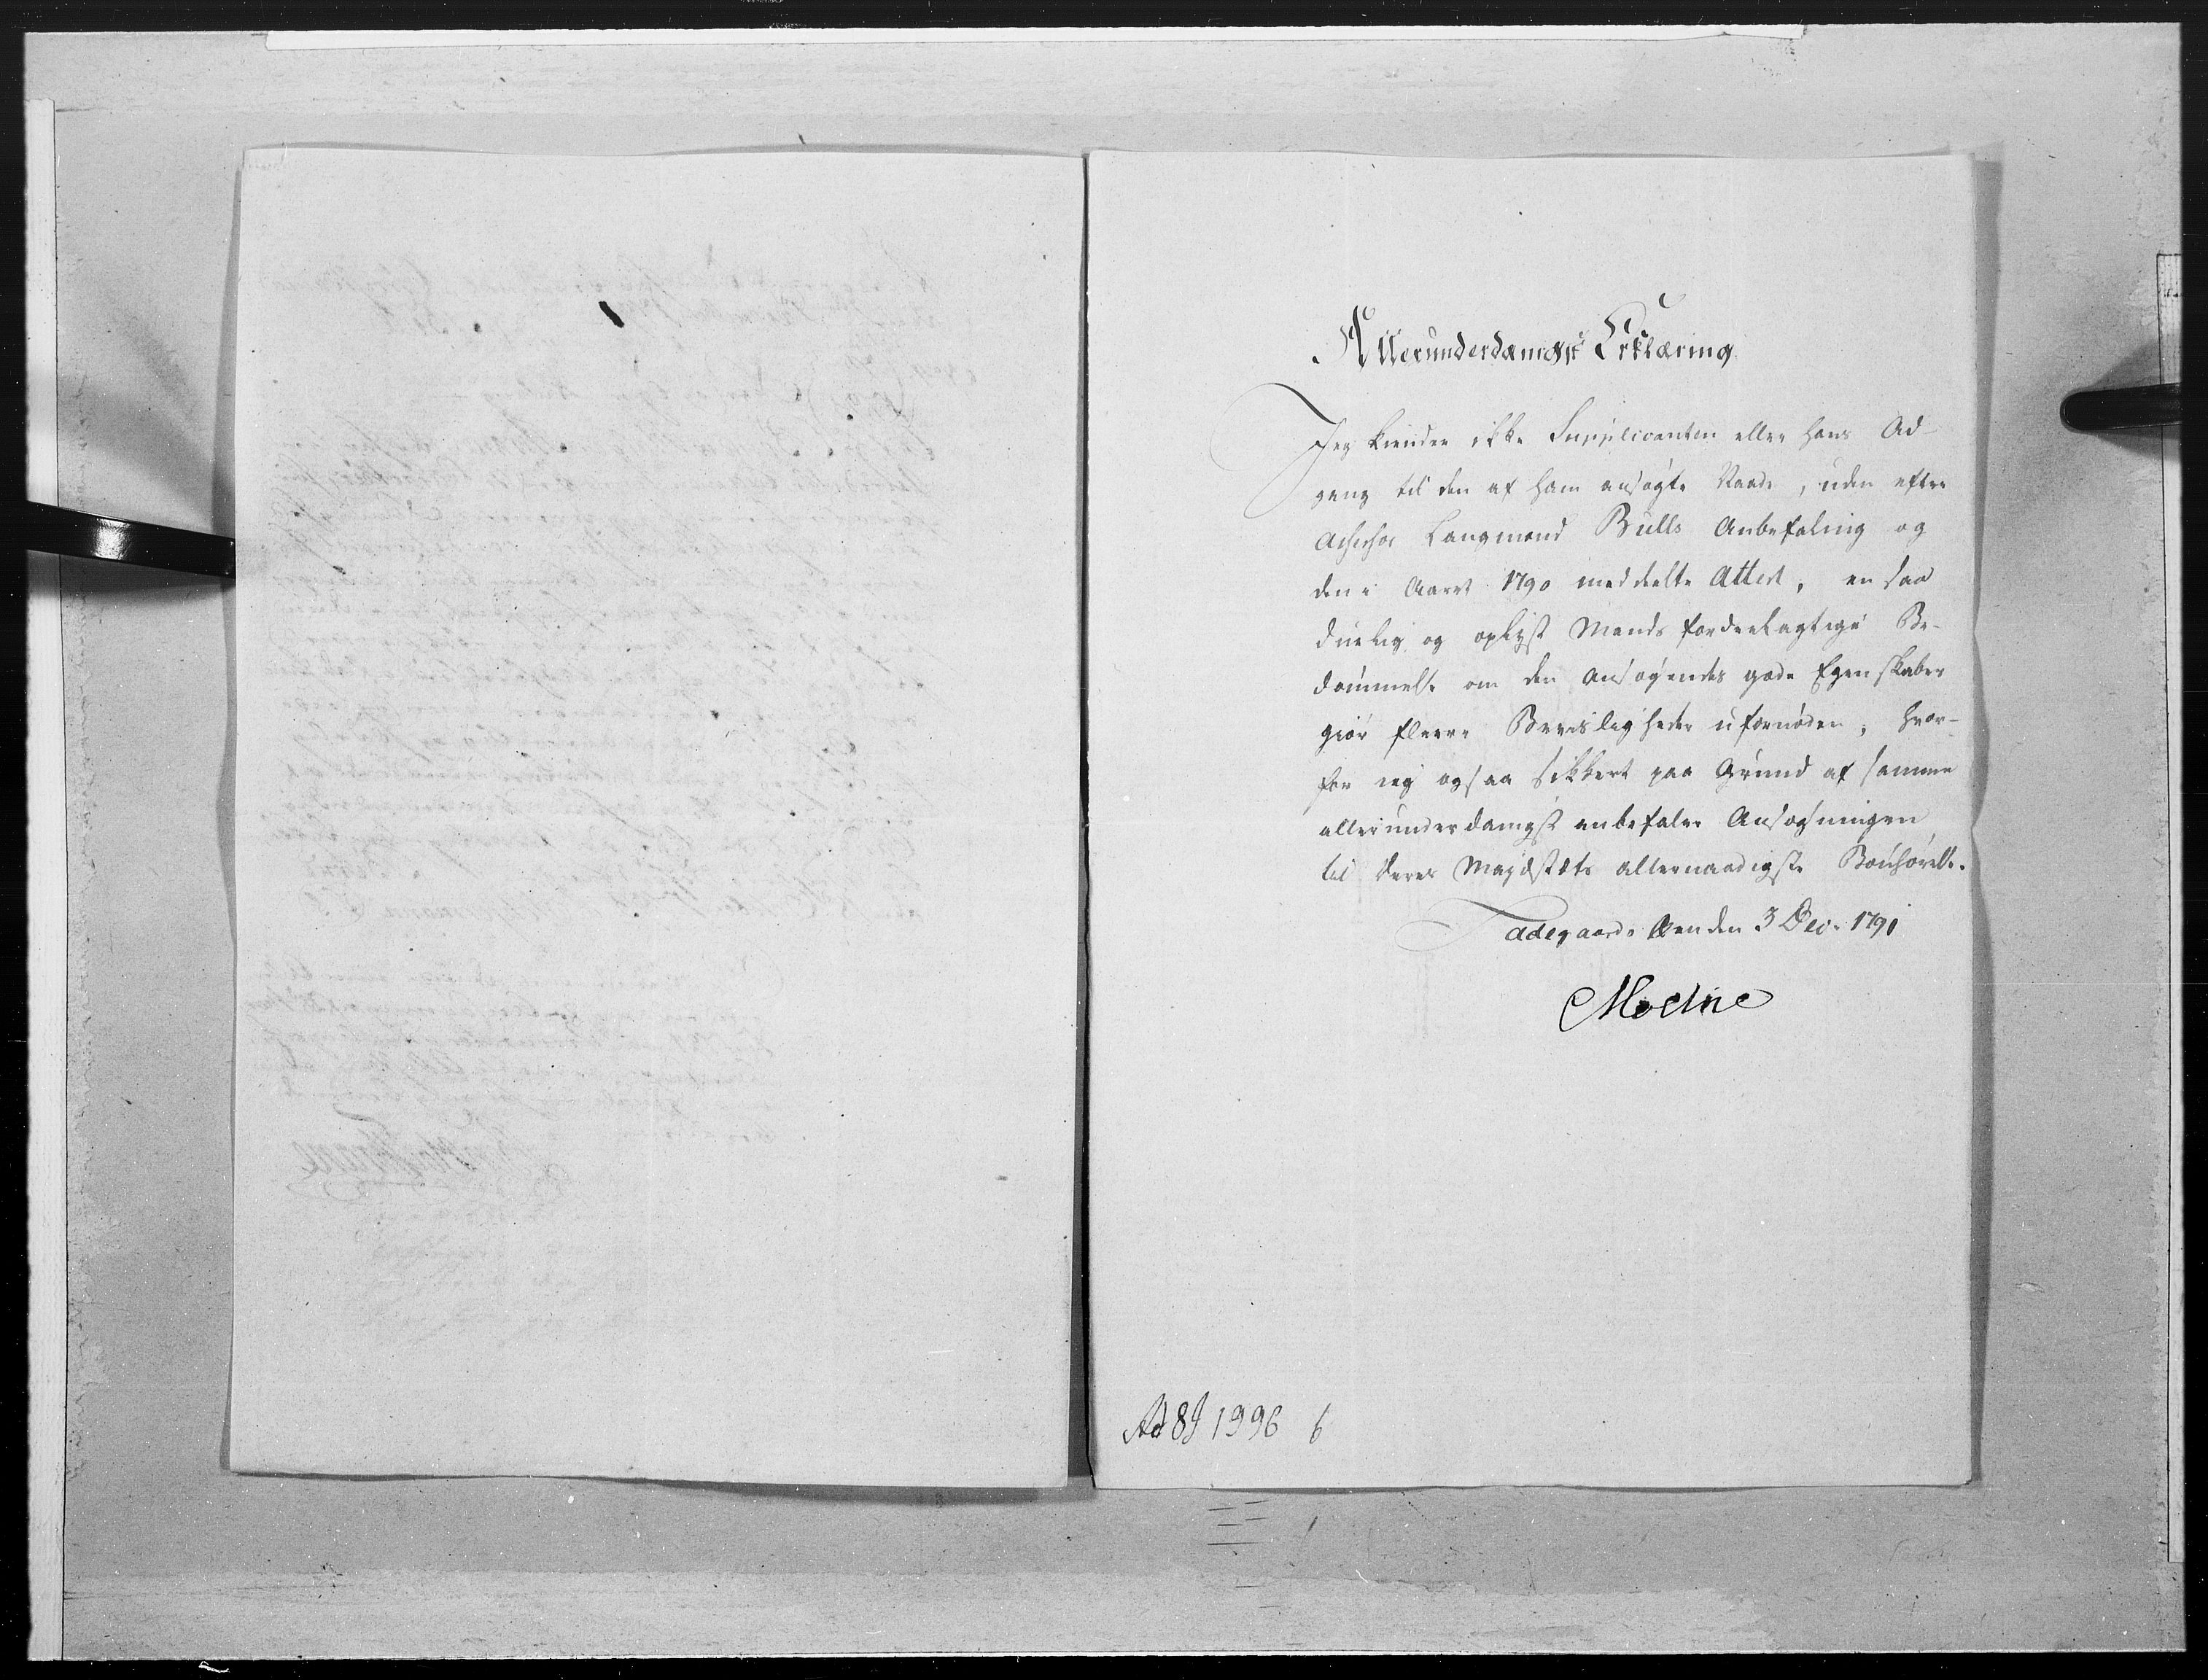 Allerunderdanigst Erklæring
Jeg kiender ikke Supplicanten eller hans Ad-
gang til den af ham ansøgte Naade, uden efter
Assessor Laugmand Bulls Anbefaling og
den i Aaret 1790 meddeelte Attest, en saa
duelig og oplyst Mands fordeelagtige Be-
dømmelse om den Ansøgendes gode Egenskaber
giør fleere Beviisligheder ufornøden; hvor-
for jeg ogsaa sikkert paa Grund af samme
allerunderdanigst anbefaler Ansøgningen
til Deres Majestæts allernaadigste Bønhørelse.
den 3 Dec. 1791
Moltke
Ad 89 1996 b